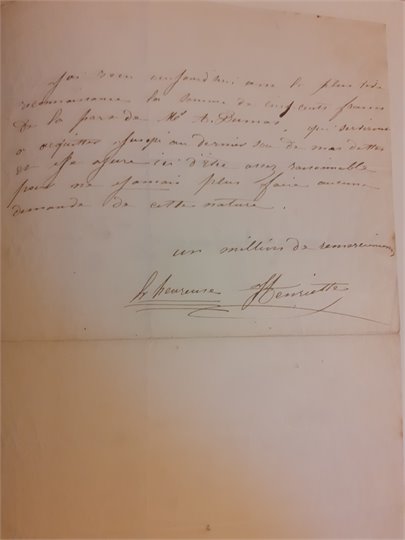 J'ai reçu aujourd'hui avec la plus vive
reconnaissance la somme de cinq cents francs
De la pars de Mr A. Dumas, qui servirons
a acquitter jusqu'au dernier sou de mes dettes
et Je assure ici d'être assez raisonnable
pour ne Jamais plus faire aucune
demande de cette nature.
un million de remerciements
L'heureuse Henriette